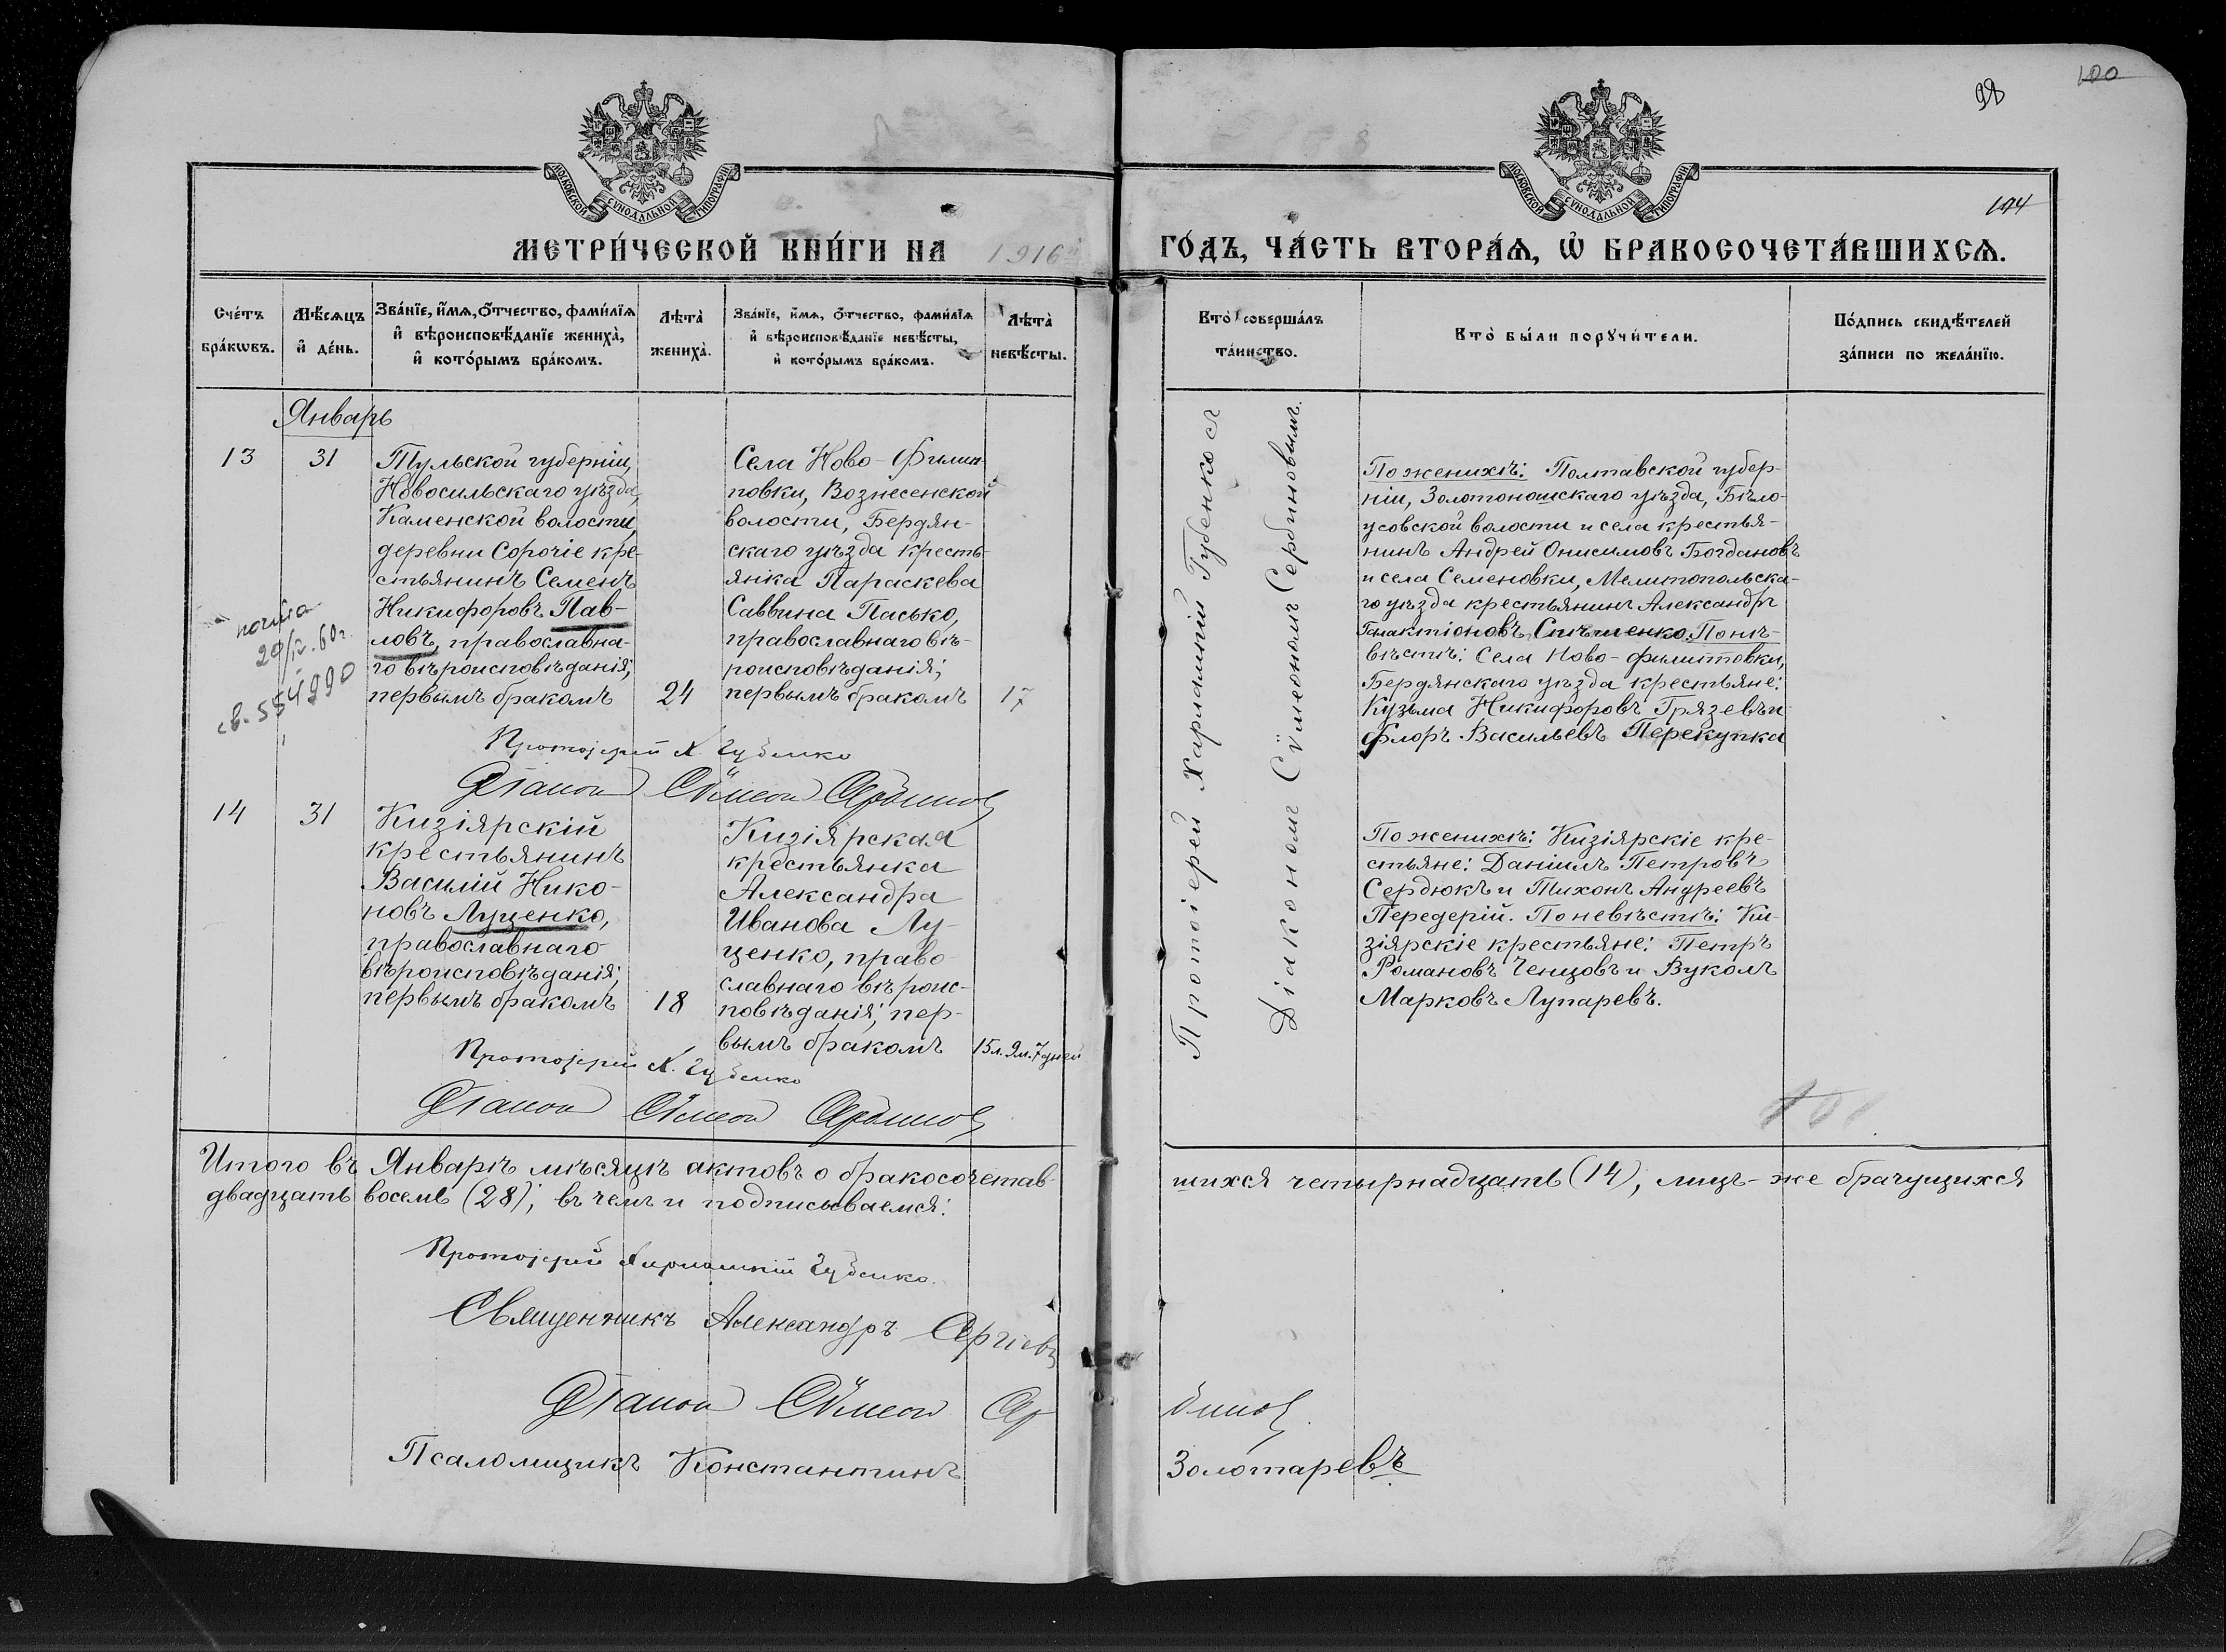 100
98
МОСКОВСКОЙ СѴНОДАЛЬНОЙ ТИПОГРАФІИ
МОСКОВСКОЙ СѴНОДАЛЬНОЙ ТИПОГРАФІИ
194
МЕТРИ́ЧЕСКОЙ КНИ́ГИ НА 1916й ГО́ДЪ, ЧА́СТЬ ВТОРА́Ѧ, Ѽ БРАКОСОЧЕТА́ВШИХСѦ.
Сче́тъ
бра́кѡвъ.
Мѣ́сѧцъ
и҆ де́нь.
Зва́нїе, и҆́мѧ, ѻ҆́тчество, фами́лїѧ
и҆ вѣроисповѣ́данїе жениха̀,
и҆ кото́рымъ бра́комъ.
Лѣта̀
жениха̀.
Зва́нїе, и҆́мѧ, ѻ҆́тчество, фами́лїѧ
и҆ вѣроисповѣ́данїе невѣ́сты,
и҆ кото́рымъ бра́комъ.
Лѣта̀
невѣ́сты.
Кто̀ соверша́лъ
та́инство.
Кто̀ бы́ли порꙋчи́тели.
По́дпись свидѣ́телей
за́писи по жела́нїю.
Январь
13
31
Тульской губерніи,
Новосильскаго уѣзда,
Каменской волости,
деревни Сорочіе кре-
стьянинъ Семенъ
Никифоровъ Пав-
ловъ, православна-
го вѣроисповѣданія;
первымъ бракомъ
24
Села Ново-Филип-
повки, Вознесенской
волости, Бердян-
скаго уѣзда кресть-
янка Параскева
Саввина Пасько,
православнаго вѣ-
роисповѣданія;
первымъ бракомъ
17
29/IV.60г.
св. 554990
Протоіерей Х. Губенко
Діаконъ Сѵмеонъ Сербиновъ
Протоіерей Харлампій Губенко съ
Діакономъ Сѵмеономъ Сербиновымъ.
По женихѣ: Полтавской губер-
ніи, Золотоношскаго уѣзда, Бѣло-
усовской волости и села крестья-
нинъ Андрей Онисимовъ Богдановъ
и села Семеновки, Мелитопольска-
го уѣзда крестьянинъ Александръ
Галактіоновъ Спѣшенко. По не-
вѣстѣ: Села Ново-филипповки,
Бердянскаго уѣзда крестьяне:
Кузьма Никифоровъ Грязевъ и
Флоръ Васильевъ Перекупка
14
31
Кизіярскій
крестьянинъ
Василій Нико-
новъ Луценко,
православнаго
вѣроисповѣданія;
первымъ бракомъ
18
Кизіярская
крестьянка
Александра
Иванова Лу-
ценко, право-
славнаго вѣроис-
повѣданія; пер-
вымъ бракомъ
15л. 9м. 7дней
Протоіерей Х. Губенко
Діаконъ Сѵмеонъ Сербиновъ
По женихѣ: Кизіярскіе кре-
стьяне: Даніилъ Петровъ
Сердюкъ и Тихонъ Андреевъ
Передерій. По невѣстѣ: Ки-
зіярскіе крестьяне: Петръ
Романовъ Ченцовъ и Вуколъ
Марковъ Лупаревъ.
Итого въ Январѣ мѣсяцѣ актовъ о бракосочетав-шихся четырнадцать (14), лицъ-же брачущихся
двадцать восемь (28); въ чемъ и подписываемся:
Протоіерей Харлампій Губенко.
Священникъ Александръ Сергіевъ
Діаконъ Сѵмеонъ Сербиновъ.
Псаломщикъ Константинъ Золотаревъ.